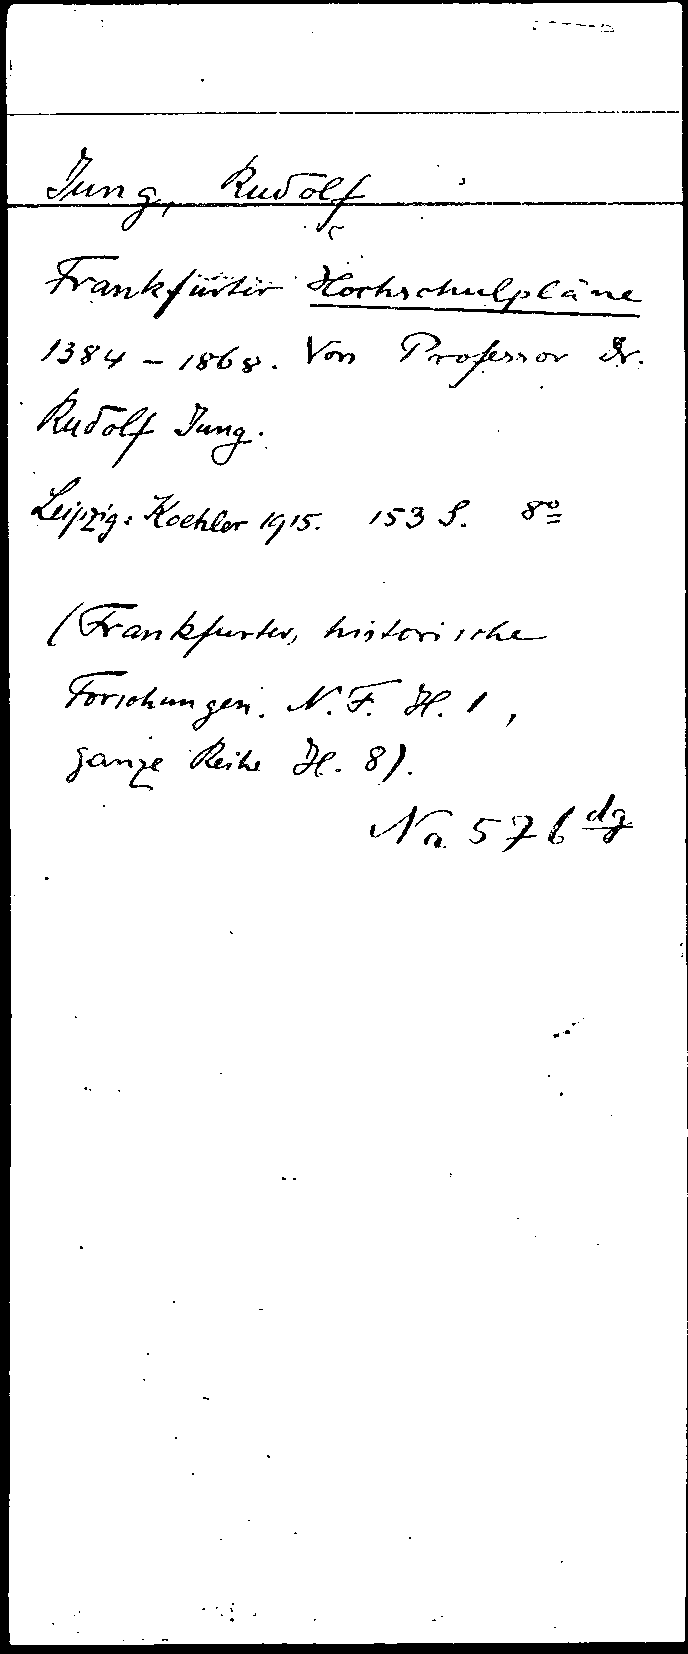 Jung, Rudolf
Frankfurter Hochschulpläne
1384 – 1868. Von Professor Dr.
Rudolf Jung.
Leipzig: Koehler 1915. 153 S. 8º
(Frankfurter historische
Forschungen. N. F. H. 1,
ganze Reihe H. 8).
Na 576 dg